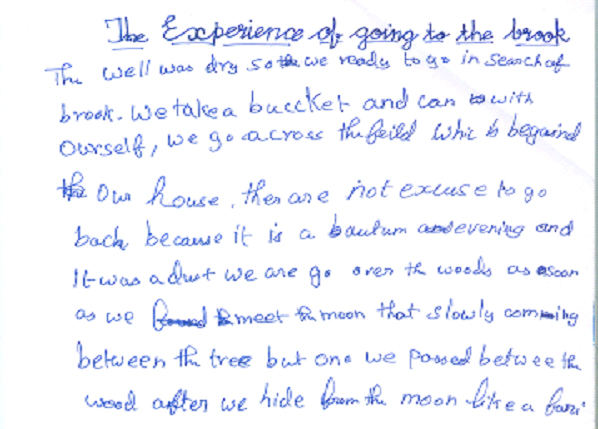 The Experience of going to the brook
The well was dry so the we ready to go in search of
brook. We take a buccket and can with
Ourself, we go across the feild whic is begaind
the Our house, ther are not excuse to go
back because it is a bautum and evening and
it was a dust we are go over the woods as soon
as we meet the moon that slowly comming
between the tree but one we passed betwee the
wood after we hide from the moon like a fani